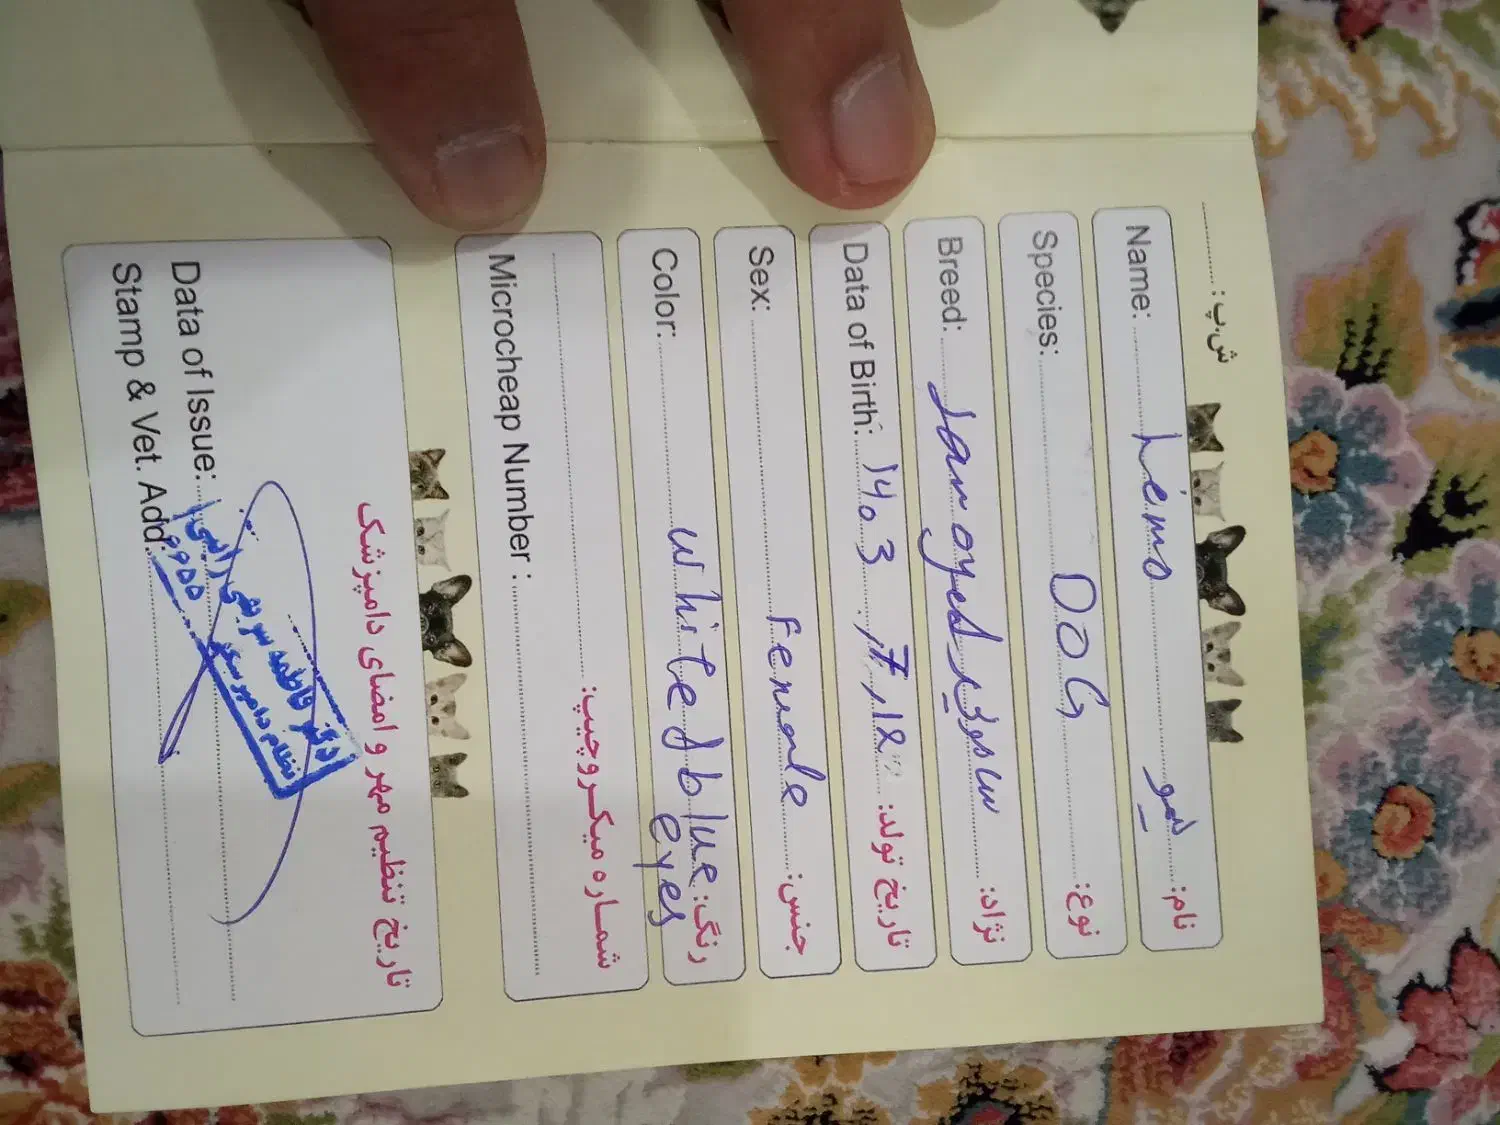 ش.پ: 
Name: Limo لیمو نام:
Species: DOG نوع:
Breed: Samoyed ساموید نژاد:
Data of Birth: 1403 تاریخ تولد:
Sex: Female جنس:
Color: white & blue eyes رنگ:
شماره میکروچیپ:
Microcheap Number :
تاریخ تنظیم مهر و امضای دامپزشک
Data of Issue:
Stamp & Vet. Add:
دکتر فاطمه
نظام دامپزشکی